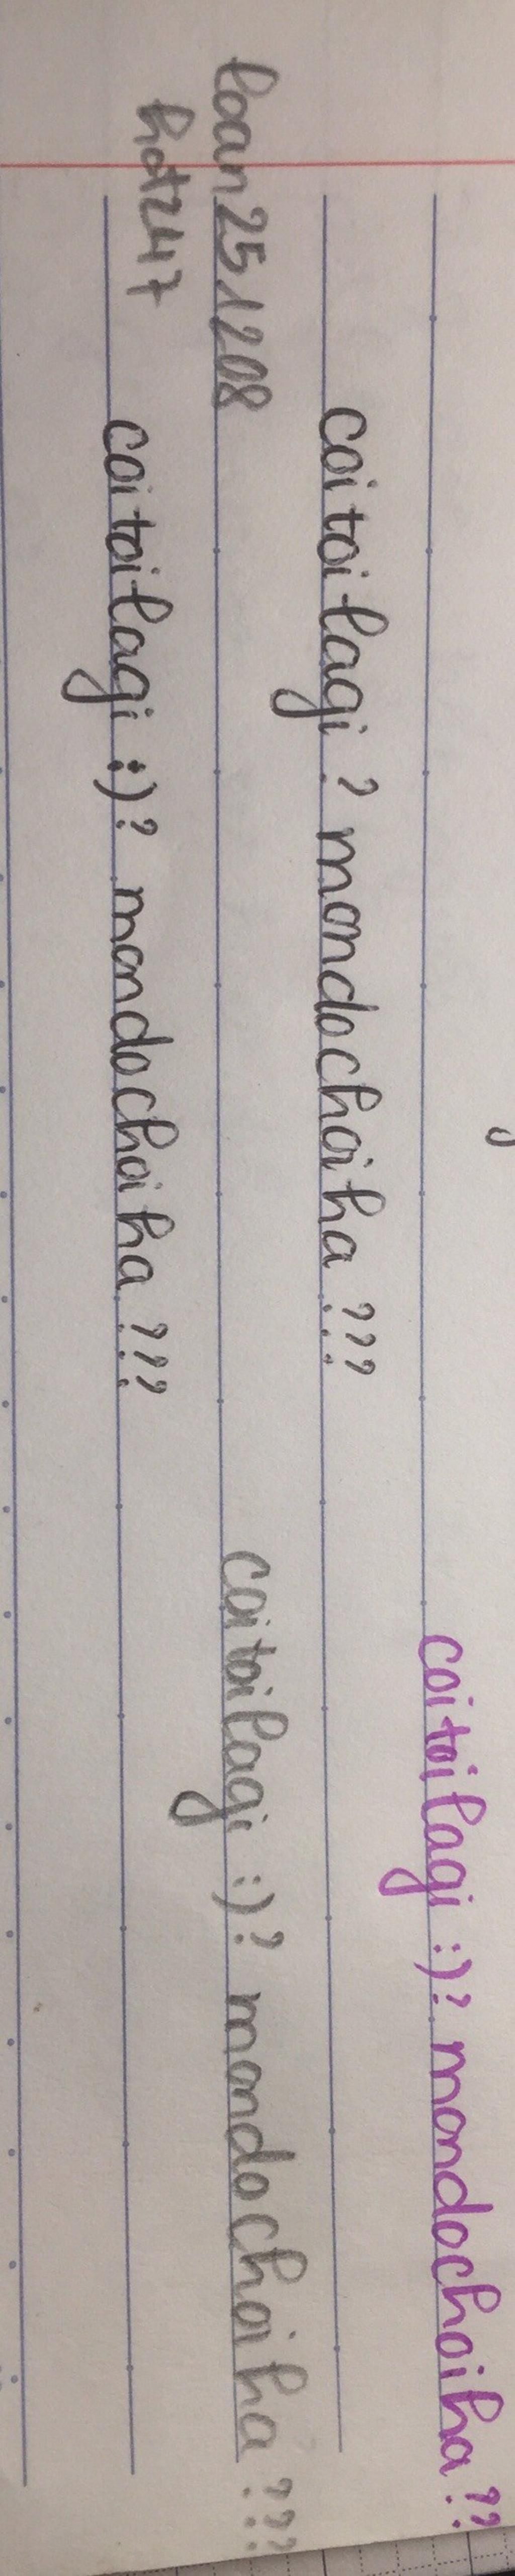 coitoilagi :)? mondochoiha ??
coitoilagi ? mondochoiha ???
loan251208
coitoilagi :)? mondochoiha ???
hot247
coitoilagi :)? mondochoiha ???